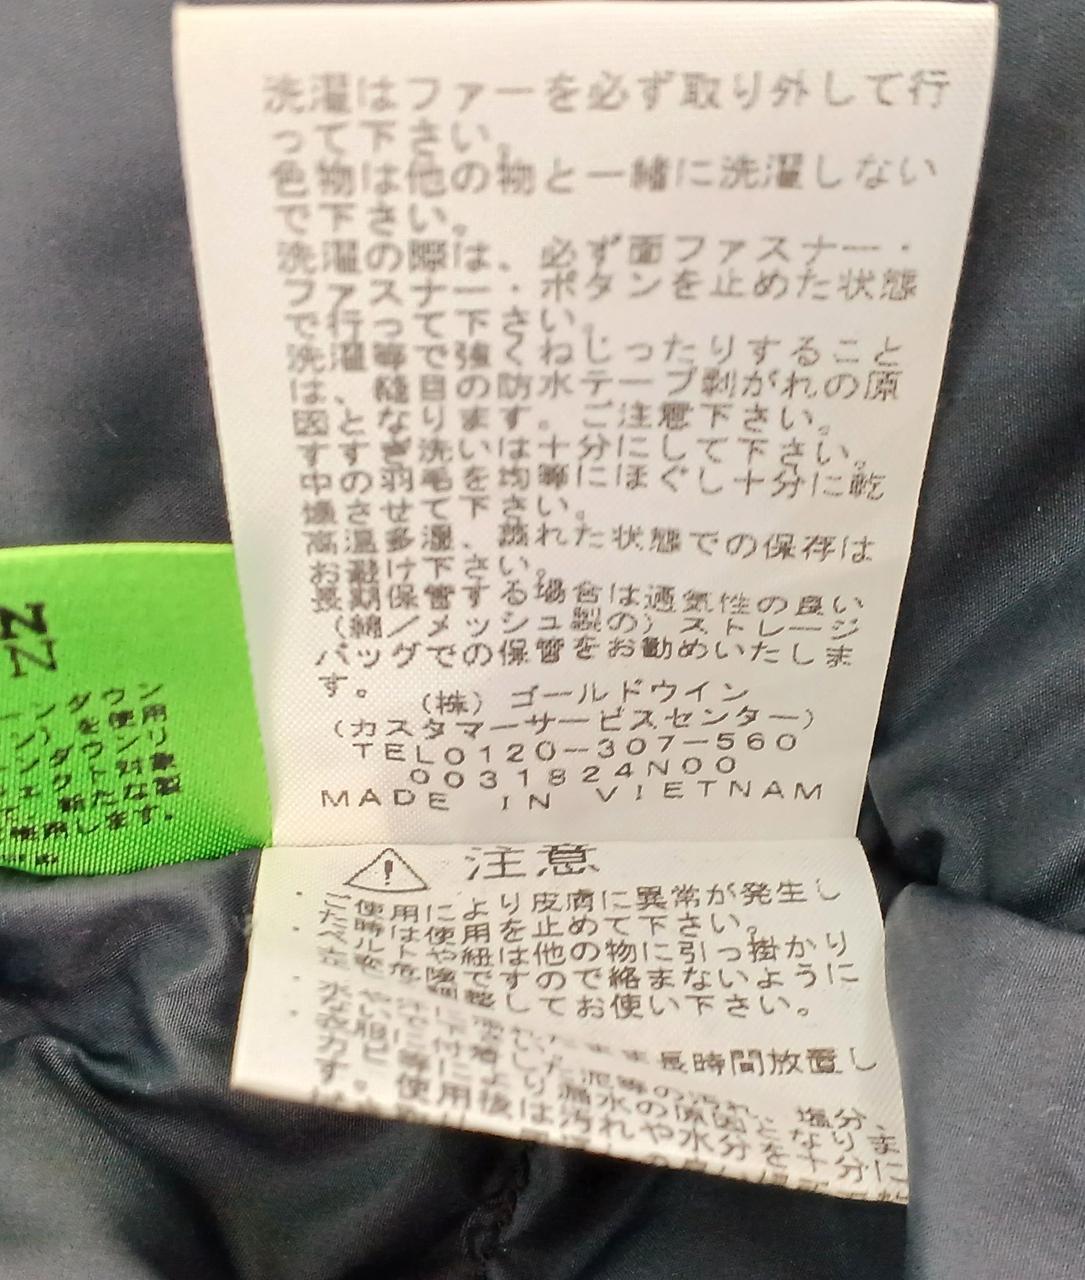 洗濯はファーを必ず取り外して行
って下さい。
色物は他の物と一緒に洗濯しない
で下さい。
洗濯の際は、必ず面ファスナー・
ファスナー・ボタンを止めた状態
で行って下さい。
洗濯等で強くねじったりすること
は、縫目の防水テープ剥がれの原
因となります。ご注意下さい。
すすぎ洗いは十分にして下さい。
中の羽毛を均等にほぐし十分に乾
燥させて下さい。
高温多湿、濡れた状態での保存は
お避け下さい。
長期保管する場合は通気性の良い
(綿／メッシュ製の)ストレージ
バッグでの保管をお勧めいたしま
す。
(株)ゴールドウイン
(カスタマーサービスセンター)
TEL0120-307-560
0031824N00
MADE IN VIETNAM
注意
・ご使用により皮膚に異常が発生し
た時は使用を止めて下さい。
・ベルトや紐は他の物に引っ掛かり
危険ですので絡まないように
調整してお使い下さい。
長時間放置し
泥等の汚れ、塩分、
より漏水の原因となりま
す。使用後は汚れや水分を十分に
ンダウン
を使用
ダウン
対象
新たな製
使用します。